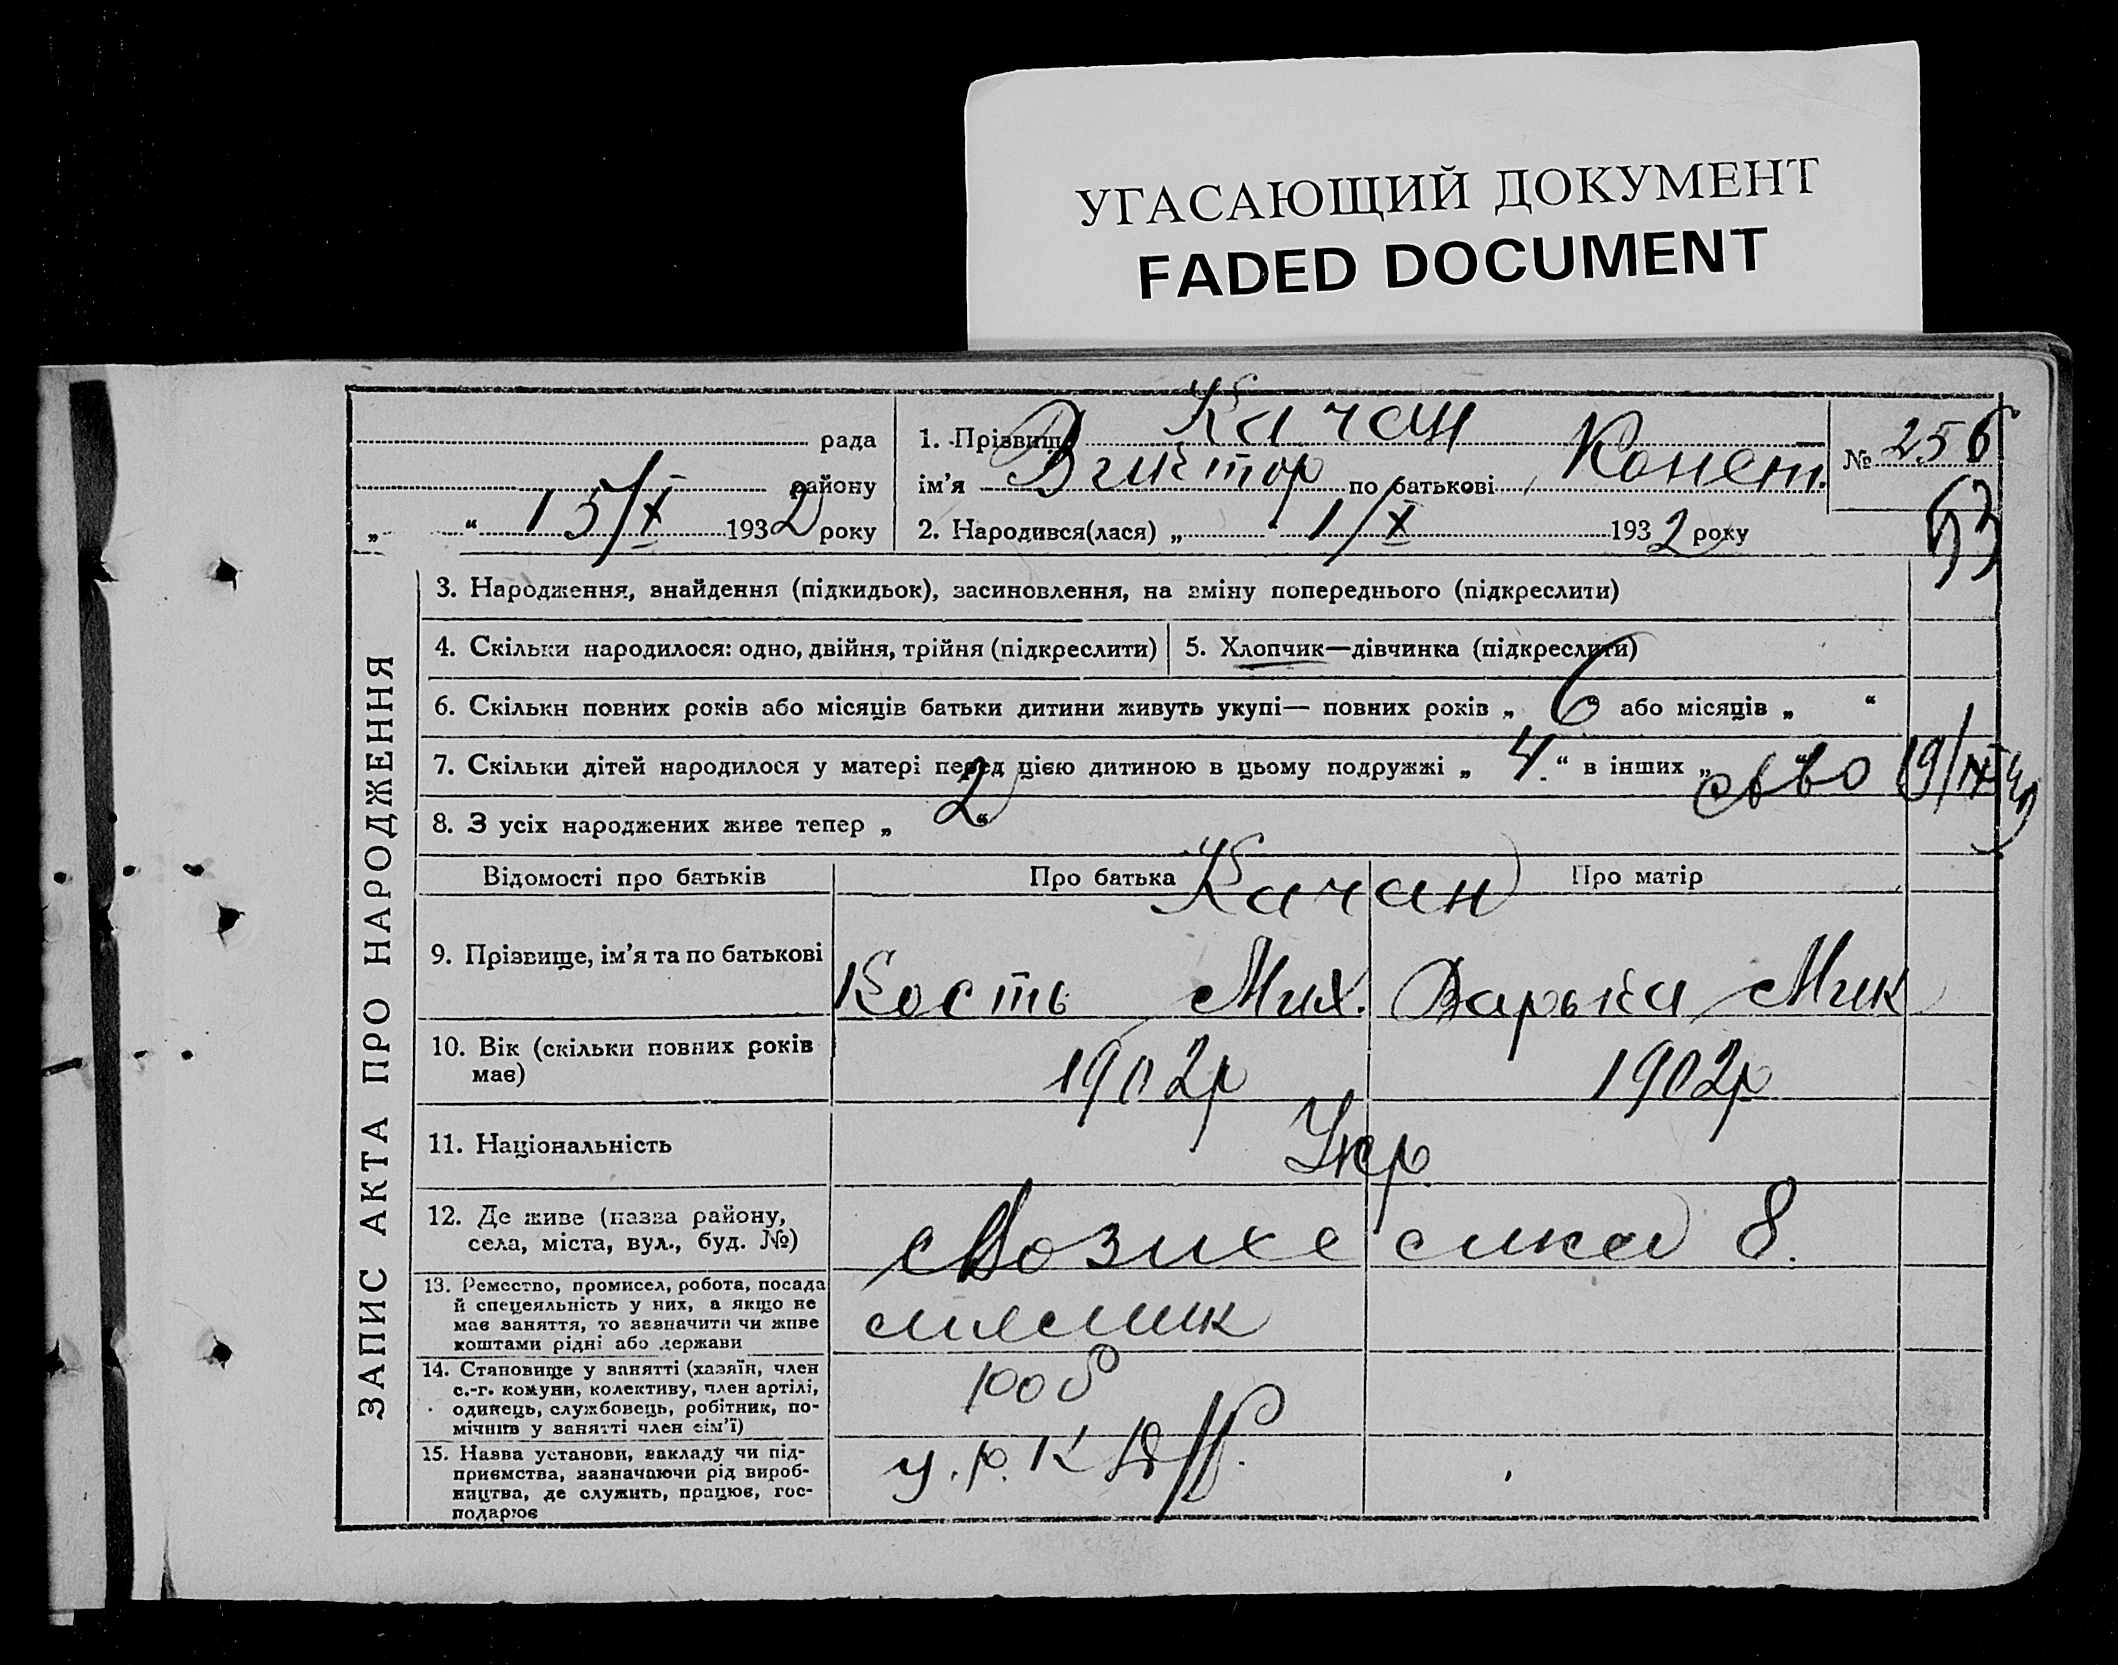 УГАСАЮЩИЙ ДОКУМЕНТ
FADED DOCUMENT
ЗАПИС АКТА ПРО НАРОДЖЕННЯ
рада
району
„ “ 15/X 1932 року
1. Прізвище Качан
ім’я Віктор по батькові Конст.
2. Народився(лася) „ “ 1/X 1932 року
№ 256
53
3. Народження, знайдення (підкидьок), засиновлення, на зміну попереднього (підкреслити)
4. Скільки народилося: одно, двійня, трійня (підкреслити)
5. Хлопчик—дівчинка (підкреслити)
6. Скільки повних років або місяців батьки дитини живуть укупі— повних років „ 6 або місяців „ “
7. Скільки дітей народилося у матері перед цією дитиною в цьому подружжі „ 4 “ в інших „ “
8. З усіх народжених живе тепер „ 2 “
Відомості про батьків
Про батька
Про матір
Качан
9. Прізвище, ім’я та по батькові
Кость Мих.
Дарька Мик
10. Вік (скільки повних років має)
1902р
1902р
11. Національність
Укр.
12. Де живе (назва району, села, міста, вул., буд. №)
8.
13. Ремество, промисел, робота, посада
й спецеяльність у них, а якщо не
має заняття, то зазначити чи живе
коштами рідні або держави
14. Становище у занятті (хазяїн, член
с.-г. комуни, колективу, член артілі,
одинець, службовець, робітник, по-
мічнив у занятті член сім’ї)
роб
15. Назва установи, закладу чи під-
приємства, зазначаючи рід вироб-
ництва, де служить, працює, гос-
подарює